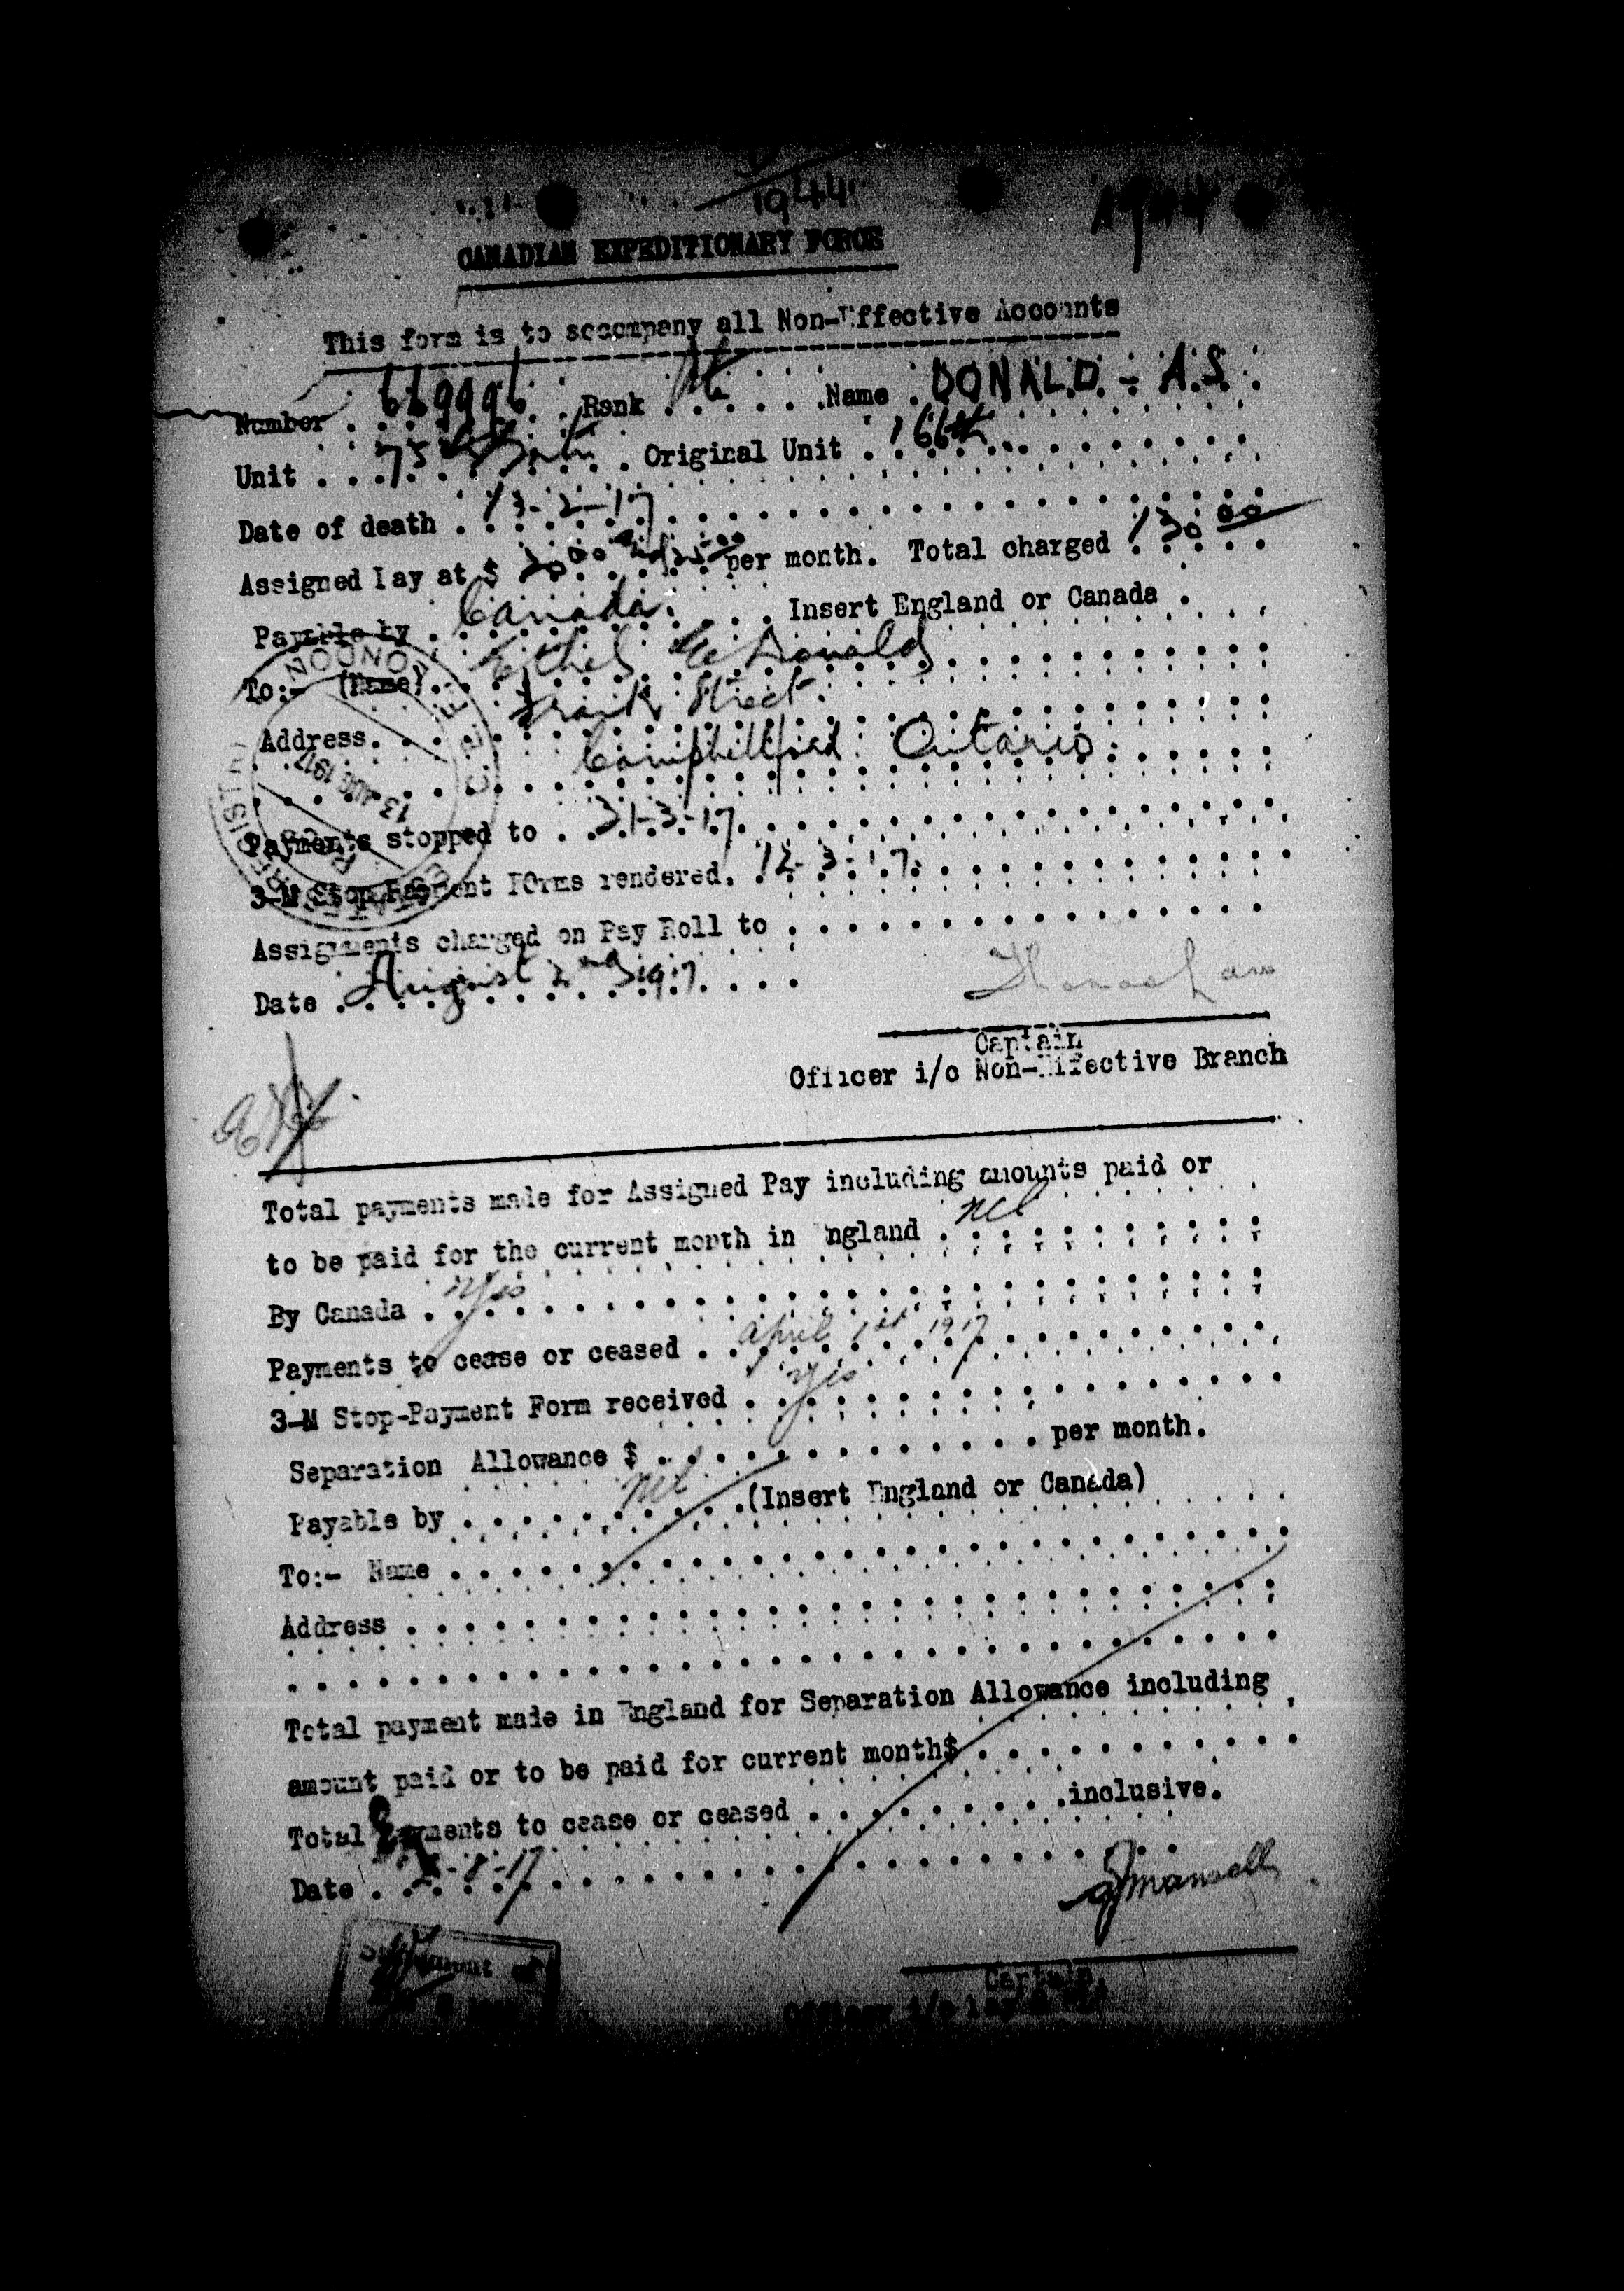 1944
1944
CANADIAN EXPEDITIONARY FORCE
This form is to accompany all Non-Effective Accounts
Number 669996 Rank Pte Name DONALD - A.S.
Unit 75th Batn Original Unit 166th
Date of death 13-2-17
Assigned Pay at $ 20.00 and 25.00 per month. Total charged 130.00
Payable by Canada Insert England or Canada
To:- (Name) Ethel E Donald
Address. Frank Street
Campbellford Ontario
Payments stopped to 31-3-17
3-M Stop Payment FOrms rendered. 12-3-17
Assignments charged on Pay Roll to
Date August 2nd 1917
Captain
Officer i/c Non-Effective Branch
Total payments made for Assigned Pay including amounts paid or
to be paid for the current month in England nil
By Canada Yes
Payments to cease or ceased April 1st 1917
3-M Stop-Payment Form received Yes
Separation Allowance $ per month.
Payable by nil (Insert England or Canada)
To:- Name
Address
Total payment made in England for Separation Allowance including
amount paid or to be paid for current month$
Total Payments to cease or ceased inclusive.
Date -8-17
Mansell
Captain.
LONDON
13 AUG 1917